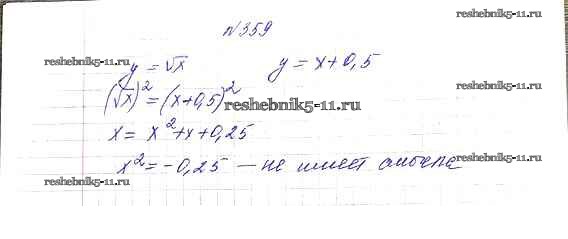 №359
reshebnik5-11.ru
reshebnik5-11.ru
y = √x y = x+0,5
(√x)² = (x+0,5)²
reshebnik5-11.ru
x = x²+x+0,25
x² = -0,25 — не имеет смысла
reshebnik5-11.ru
reshebnik5-11.ru